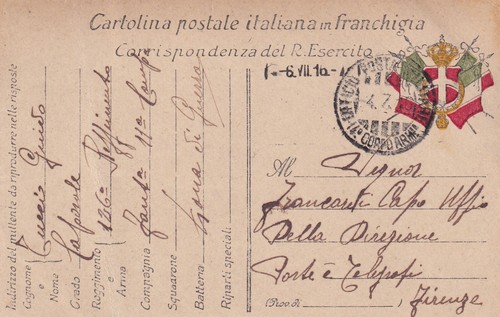 Cartolina postale italiana in franchigia
Corrispondenza del R. Esercito
-6.VII.16-
UFFICIO POSTA MILITARE
4.7
4º CORPO ARM
Indirizzo del mittente da riprodurre nelle risposte
Cognome e Nome Tuccio Guido
Grado Caporale
Reggimento 126º Reggimento
Arma Fant.ª
Compagnia 11ª Comp
Squadrone
Batteria Zona di Guerra
Riparti speciali
Al Signor
Francanti Capo Uffio
Della Direzione
Poste e Telegrafi
(Prov. di) Firenze